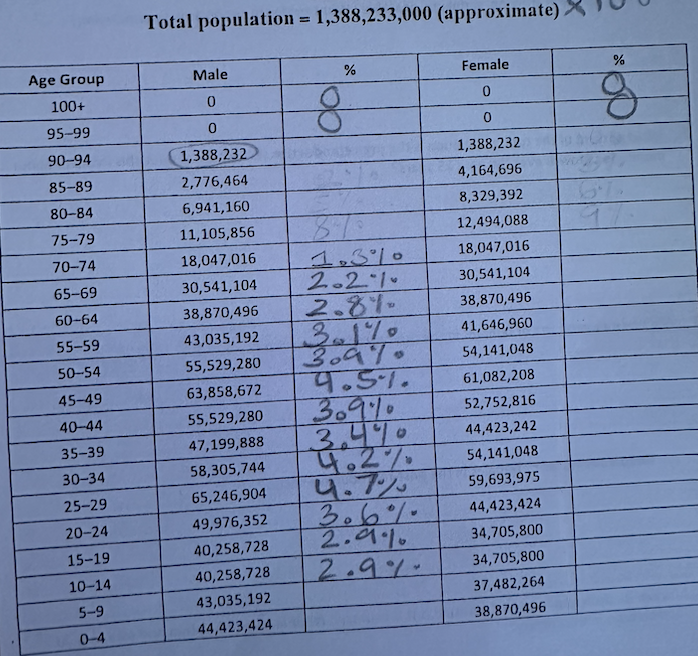 Total population = 1,388,233,000 (approximate) x100
Age Group Male % Female %
100+ 0 0 0 0
95–99 0 0 0 0
90–94 1,388,232 1,388,232
85–89 2,776,464 4,164,696
80–84 6,941,160 8,329,392 6%
75–79 11,105,856 8% 12,494,088 9%
70–74 18,047,016 1.3% 18,047,016
65–69 30,541,104 2.2% 30,541,104
60–64 38,870,496 2.8% 38,870,496
55–59 43,035,192 3.1% 41,646,960
50–54 55,529,280 3.9% 54,141,048
45–49 63,858,672 4.5% 61,082,208
40–44 55,529,280 3.9% 52,752,816
35–39 47,199,888 3.4% 44,423,242
30–34 58,305,744 4.2% 54,141,048
25–29 65,246,904 4.7% 59,693,975
20–24 49,976,352 3.6% 44,423,424
15–19 40,258,728 2.9% 34,705,800
10–14 40,258,728 2.9% 34,705,800
5–9 43,035,192 37,482,264
0–4 44,423,424 38,870,496